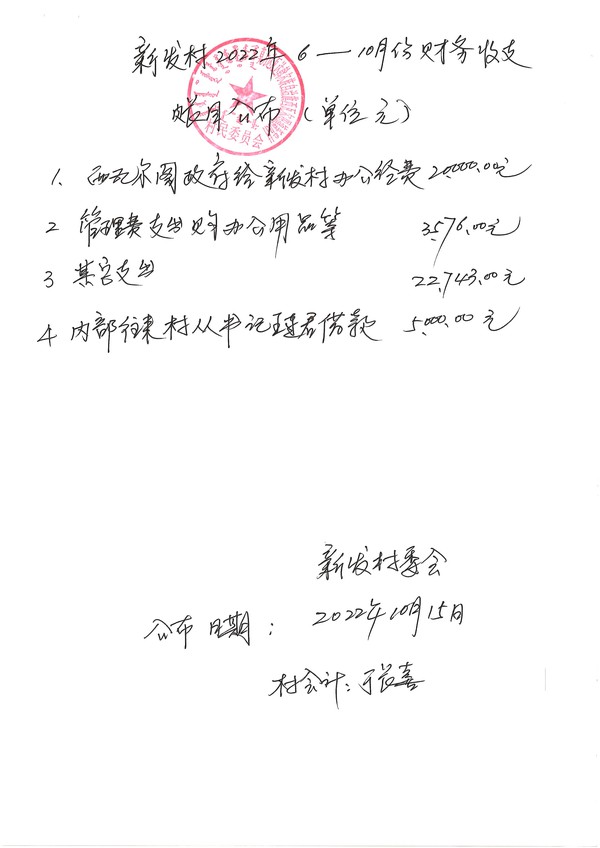 新发村2022年6—10月份财务收支
账目公布(单位元)
村民委员会
1、西瓦尔图政府给新发村办公经费20,000.00元
2 管理费支出购办公用品等 3,576.00元
3 其它支出 22,743.00元
4 内部往来村从书记 借款 5,000.00元
新发村委会
公布日期: 2022年10月15日
村会计: